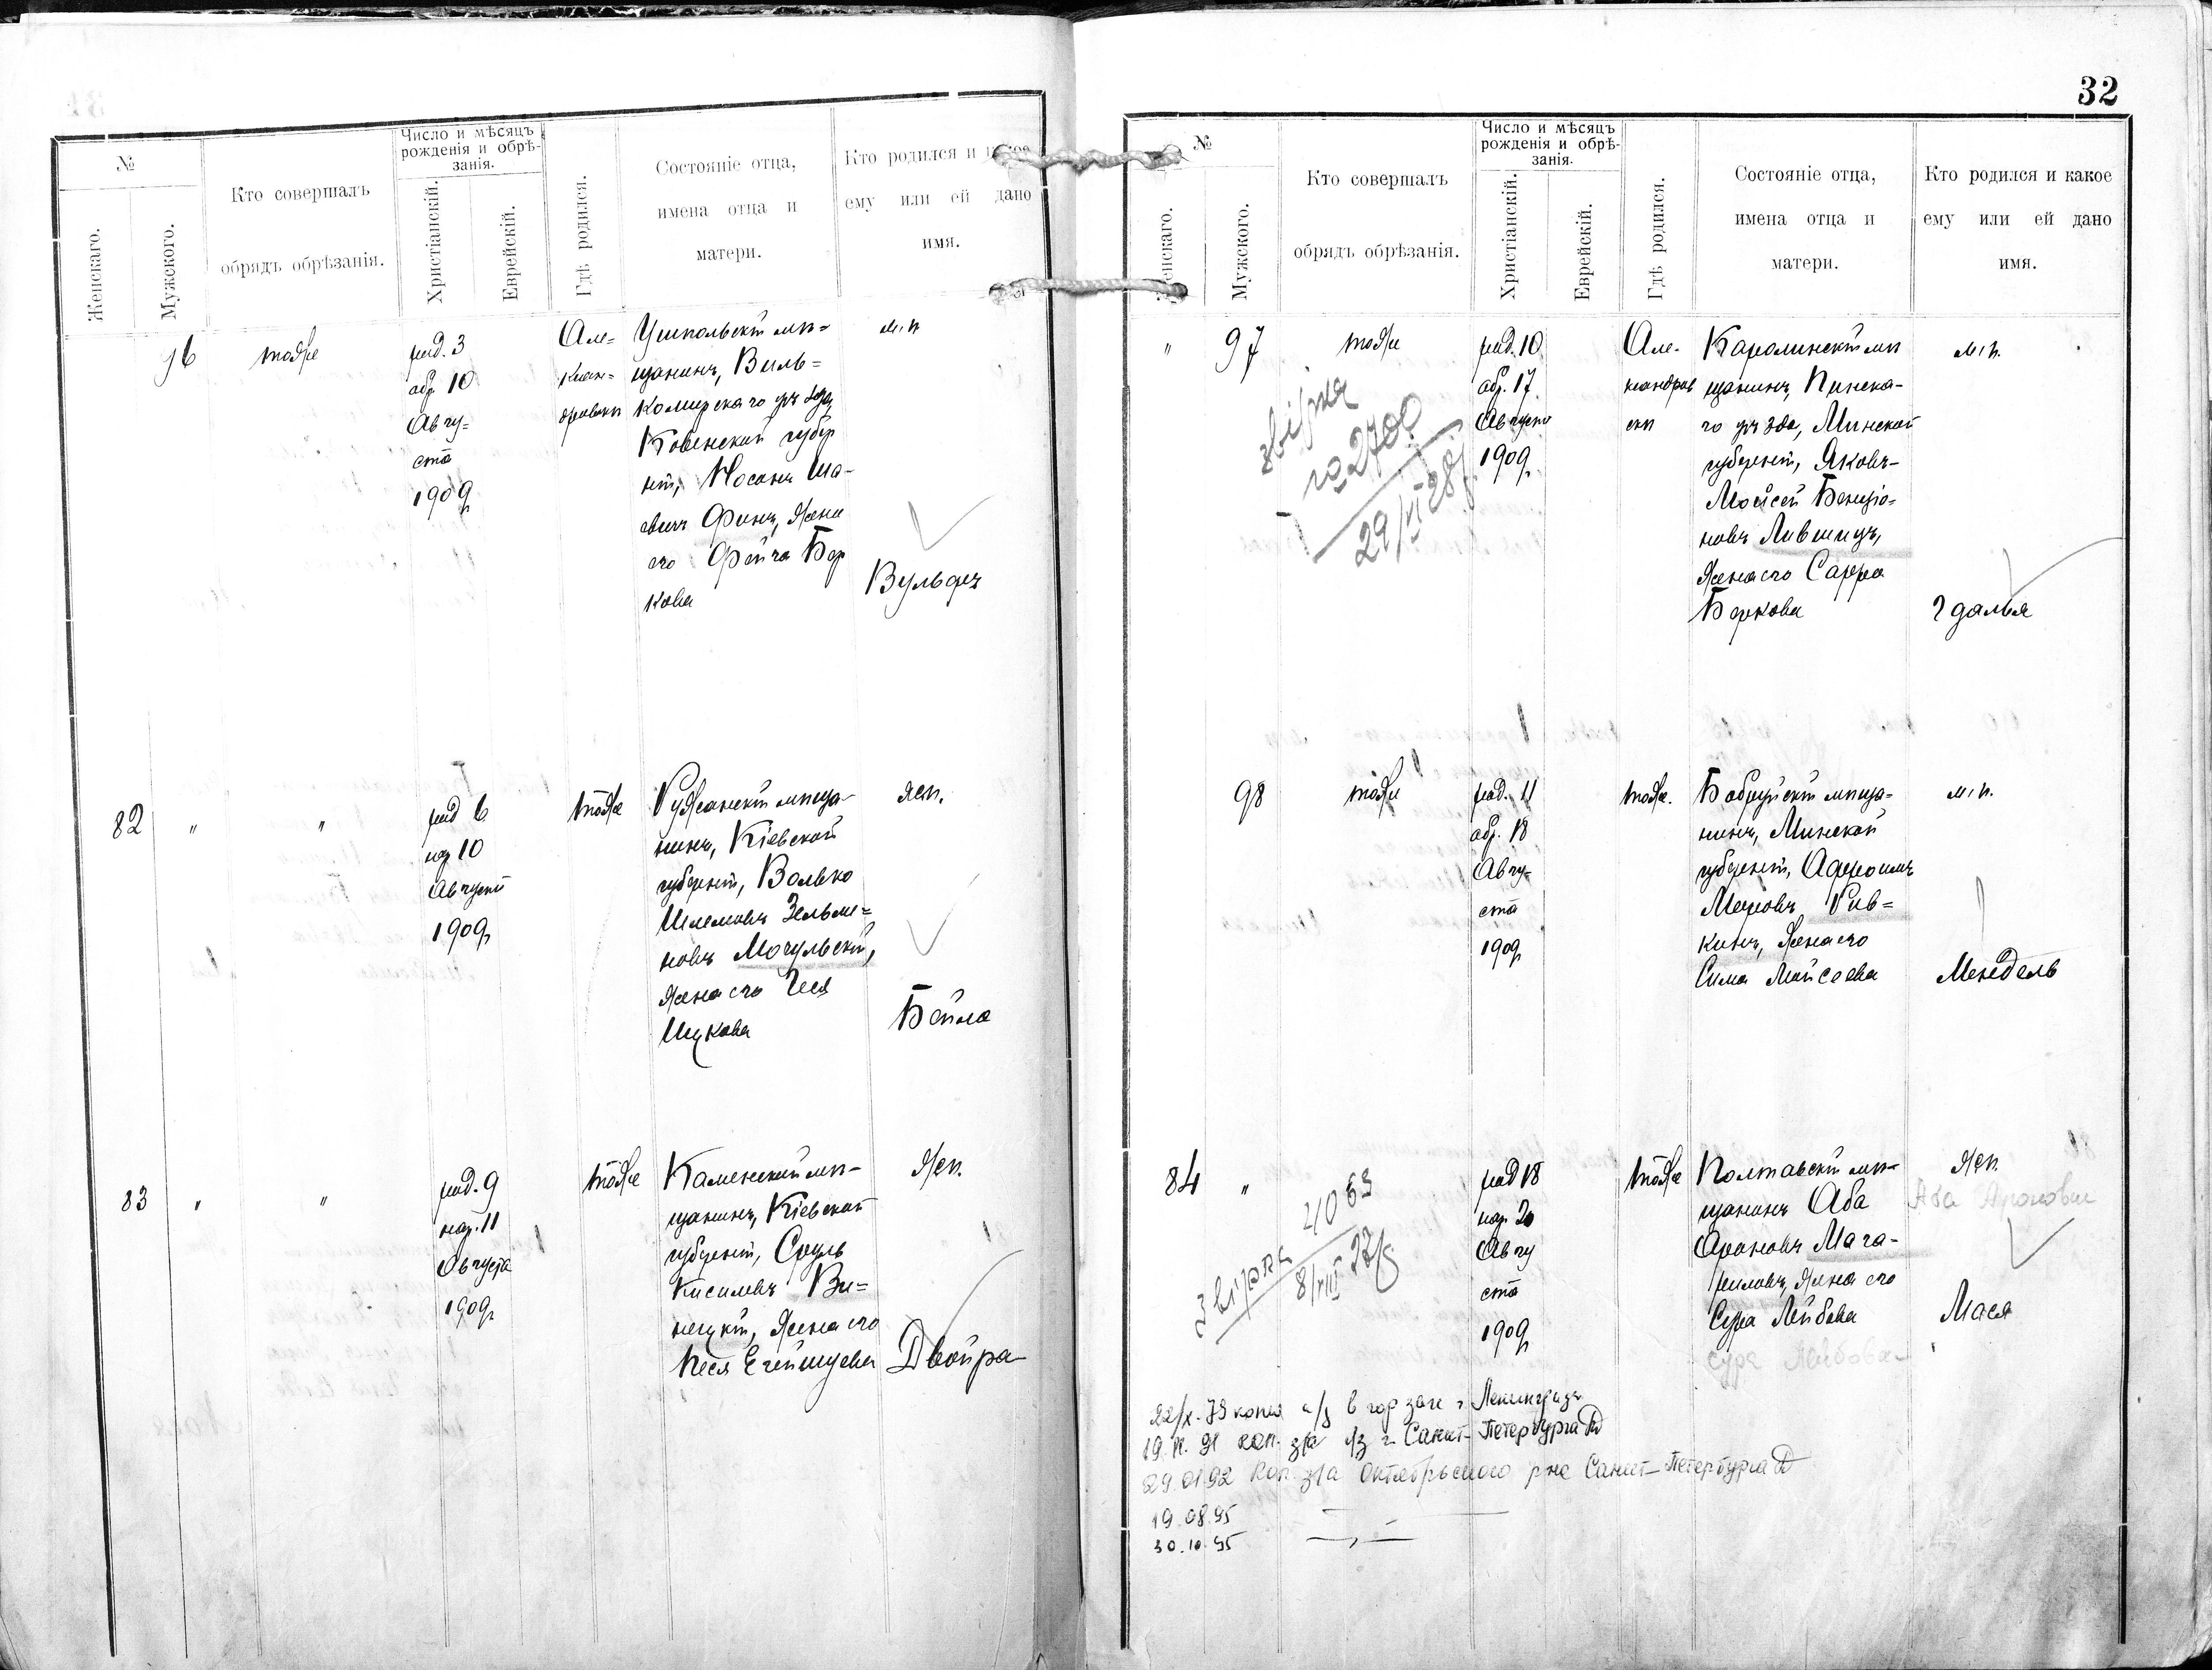 №
Женскаго.
Мужского.
Кто совершалъ
обрядъ обрѣзанія.
Число и мѣсяцъ
рожденія и обрѣ-
занія.
Христіанскій.
Еврейскій.
Гдѣ родился.
Состояніе отца,
имена отца и
матери.
Кто родился и
ему или ей дано
имя.
96
тоже
род. 3
обр. 10
Авгу=
ста
1909
Але=
ксан=
Ушпольскій мѣ=
щанинъ, Виль=
комирскаго уѣзда
Ковенской губер
ніи, Носонъ
Финъ, жена
его Фейга Бер
кова
м. п.
Вульфъ
82
"
"
род 6
нар 10
Августа
1909
тоже
мѣща-
нинъ, Кіевской
губерніи, Волько
Шлемовъ Зельме=
новъ Мочульскій,
жена его
Ицкова
жен.
Бейла
83
"
"
род. 9
нар. 11
Августа
1909
тоже
Каменскій мѣ-
щанинъ, Кіевской
губерніи, Сруль
Кисилевъ Ви=
ницкій, жена его
Песя
жен.
Двойра
32
№
Женскаго.
Мужского.
Кто совершалъ
обрядъ обрѣзанія.
Число и мѣсяцъ
рожденія и обрѣ-
занія.
Христіанскій.
Еврейскій.
Гдѣ родился.
Состояніе отца,
имена отца и
матери.
Кто родился и какое
ему или ей дано
имя.
"
97
тоже
звірка
2700
29/VI 28
род. 10
обр. 17
Августа
1909
Але-
ксандров
ск
Каролинскій мѣ
щанинъ, Пинска-
го уѣзда, Минской
губерніи, Яковъ-
Мойсей Бенціо=
новъ Лившицъ,
жена его Сарра
Беркова
м. п.
Гдалья
98
тоже
род. 11
обр. 18
Авгу=
ста
1909
тоже.
Бобруйскій мѣща=
нинъ, Минской
губерніи,
Меровъ Рив=
кинъ, жена его
Сима Мойсеева
м. п.
Мендель
84
"
звірка 4063
8/VIII 27
род 18
нар. 20
Авгу
ста
1909
тоже
Полтавскій мѣ-
щанинъ Аба
Ароновъ Мага-
риловъ, жена его
Сура Лейбова
Сура Лейбова
жен.
Аба Аронович
Мася
22/X-79 копия в гор загс г. Ленинграда
91 коп. з/а г. Санкт-Петербурга
29.01.92 Коп. з/а Октябрьского р-на Санкт-Петербурга
19.08.95 — " —
30.10.95 — " —